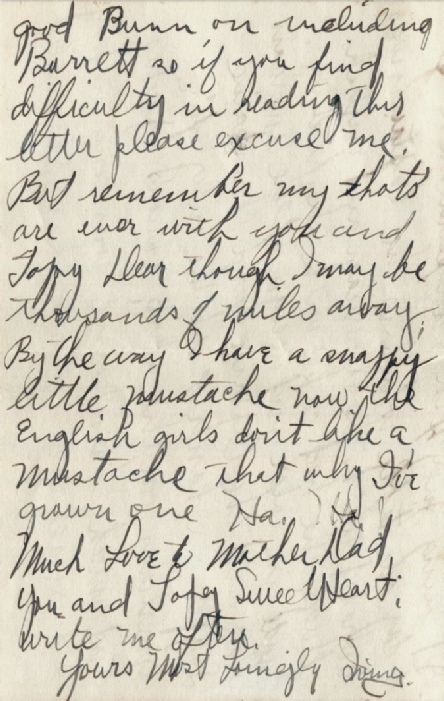 good Bunn on including
Barrett so if you find
difficulty in reading this
letter please excuse me.
But remember my thots
are ever with you and
Topsy Dear though I may be
thousands of miles away.
By the way I have a snappy
little mustache now, the
English girls don't like a
mustache that why I've
grown one Ha. Ha!
Much Love to Mother, Dad,
you and Topsy SweetHeart;
write me often.
Yours Most Lovingly